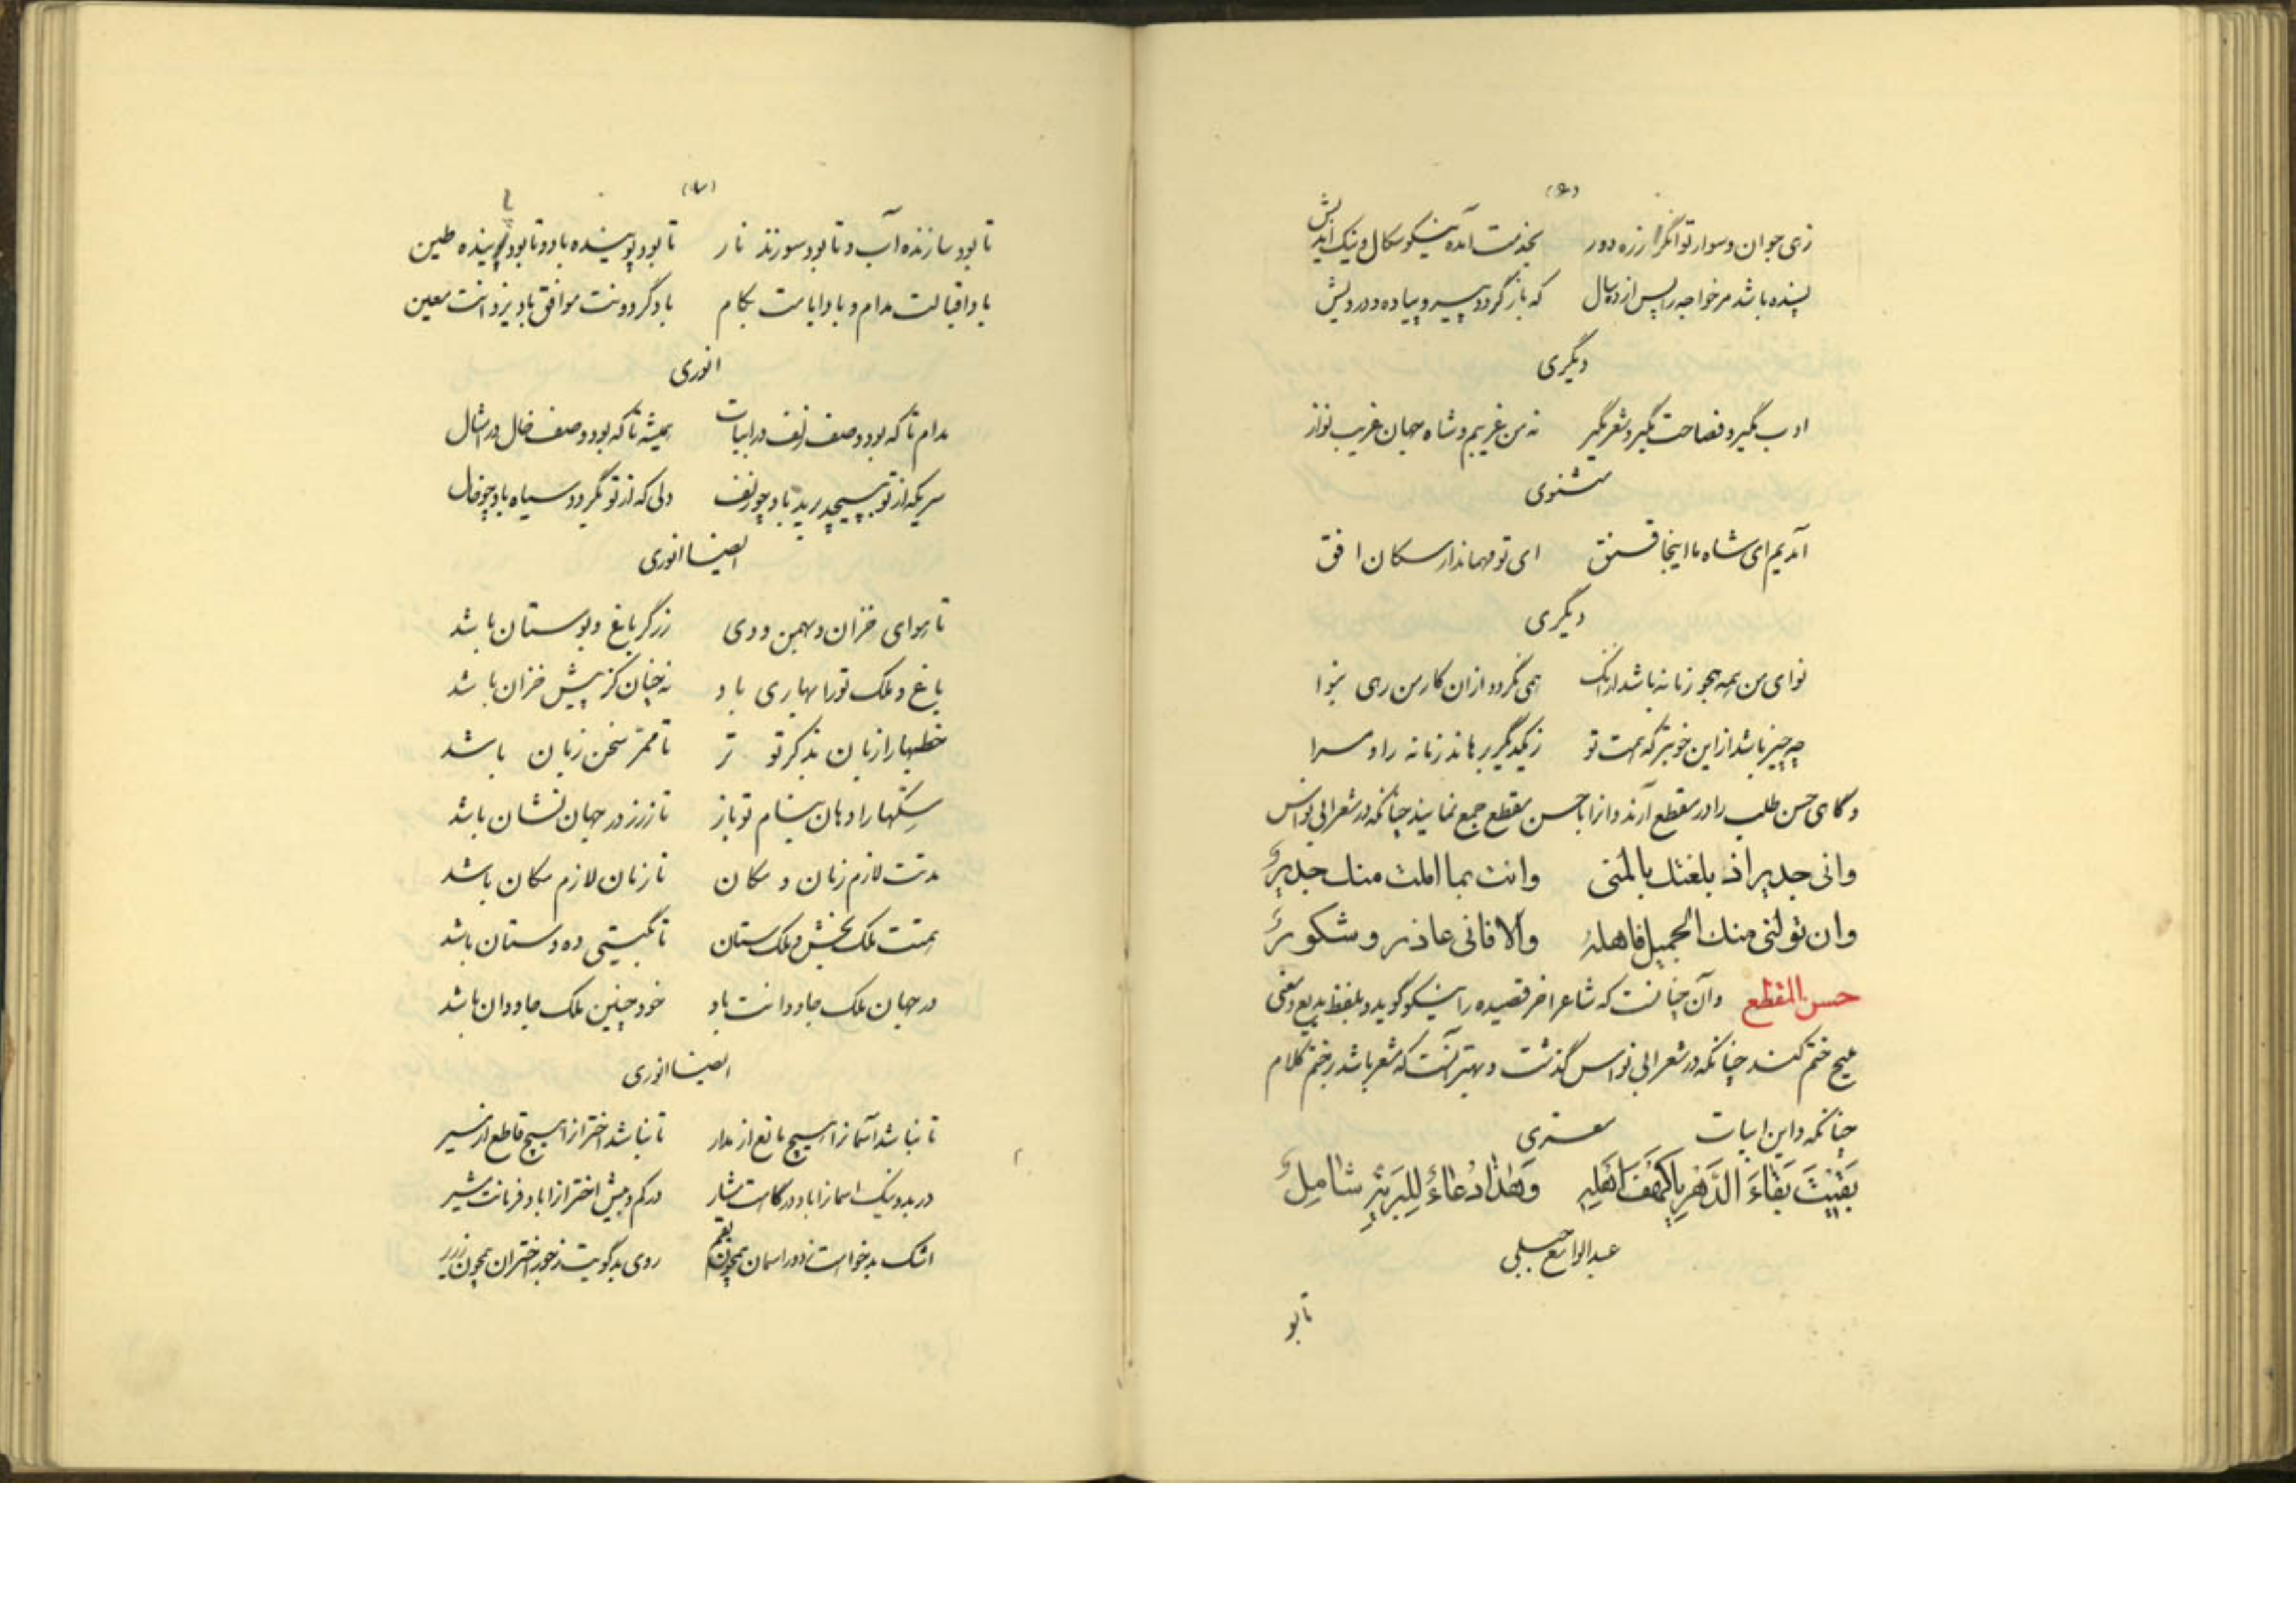 زهی جوان و سوار توانگر از ره دور بخدمت آمده نیکو سکال و نیک اندیش
پسنده باشد مر خواجه را پس از ده سال که بازگردد پیر و پیاده و درویش
دیگری
ادب مگیر و فصاحت مگیر و شعر مگیر نه من غریبم و شاه جهان غریب نواز
مثنوی
آمدیم ای شاه ما اینجا قنق ای تو مهماندار سکان افق
دیگری
نوای من همه همچو زمانه باشد از آنک همی نگردد از آن کار من رهی بنوا
چه چیز باشد از این خوبتر که همت تو ز یکدیگر برهاند زمانه را و مرا
و گاهی حسن طلب را در مقطع آرند و انرا با حسن مقطع جمع نمایند چنانکه در شعر ابی نواس
وانی جدیر اذ بلغتک بالمنی وانت بما املت منک جدیر
وان تولنی منک الجمیل فاهله والا فانی عاذر و شکور
حسن المقطع و آن چنانست که شاعر اخر قصیده را نیکو گوید و بلفظ بدیع و معنی
ملیح ختم کند چنانکه در شعر ابی نواس گذشت و بهتر آنست که مشعر باشد بر ختم کلام
چنانکه در این ابیات معری
بَقَیْتَ بَقاءَ الدَّهْرِ یا کَهْفَ اَهْلِهِ وَهذا دُعاءٌ لِلْبَرِیَّةِ شامِلٌ
عبدالواسع جبلی
تابو
تا بود سازنده آب و تا بود سوزنده نار تا بود پوینده باد و تا بود پاینده طین
باد اقبالت مدام و باد ایامت بکام باد گردونت موافق باد یزدانت معین
انوری
مدام تا که بود وصف زلف در ابیات همیشه تا که بود وصف خال در امثال
سریکه از تو بپیچد بریده باد چو زلف دلی که از تو نگردد سیاه باد چو خال
ایضا انوری
تا هوای خزان و بهمن و دی زرگر باغ و بوستان باشد
باغ و ملک تو را بهاری باد نه چنان کز پیش خزان باشد
خطبها را زبان بذکر تو تر تا ممر سخن زبان باشد
سکها را دهان بنام تو باز تا ز زر در جهان نشان باشد
مدتت لازم زمان و مکان تا زمان لازم مکان باشد
همتت ملک بخش و ملک ستان تا بگیتی ده و ستان باشد
در جهان ملک جاودانت باد خود چنین ملک جاودان باشد
ایضا انوری
تا نباشد آسمانرا هیچ مانع از مدار تا نباشد اختران را هیچ قاطع از مسیر
در بد و نیک اسمانرا باد درگاهت مشار در کم و بیش اختران را باد فرمانت مشیر
اشک بدخواهت ز دور اسمان همچون بقم روی بدگویت ز جور اختران همچون زریر